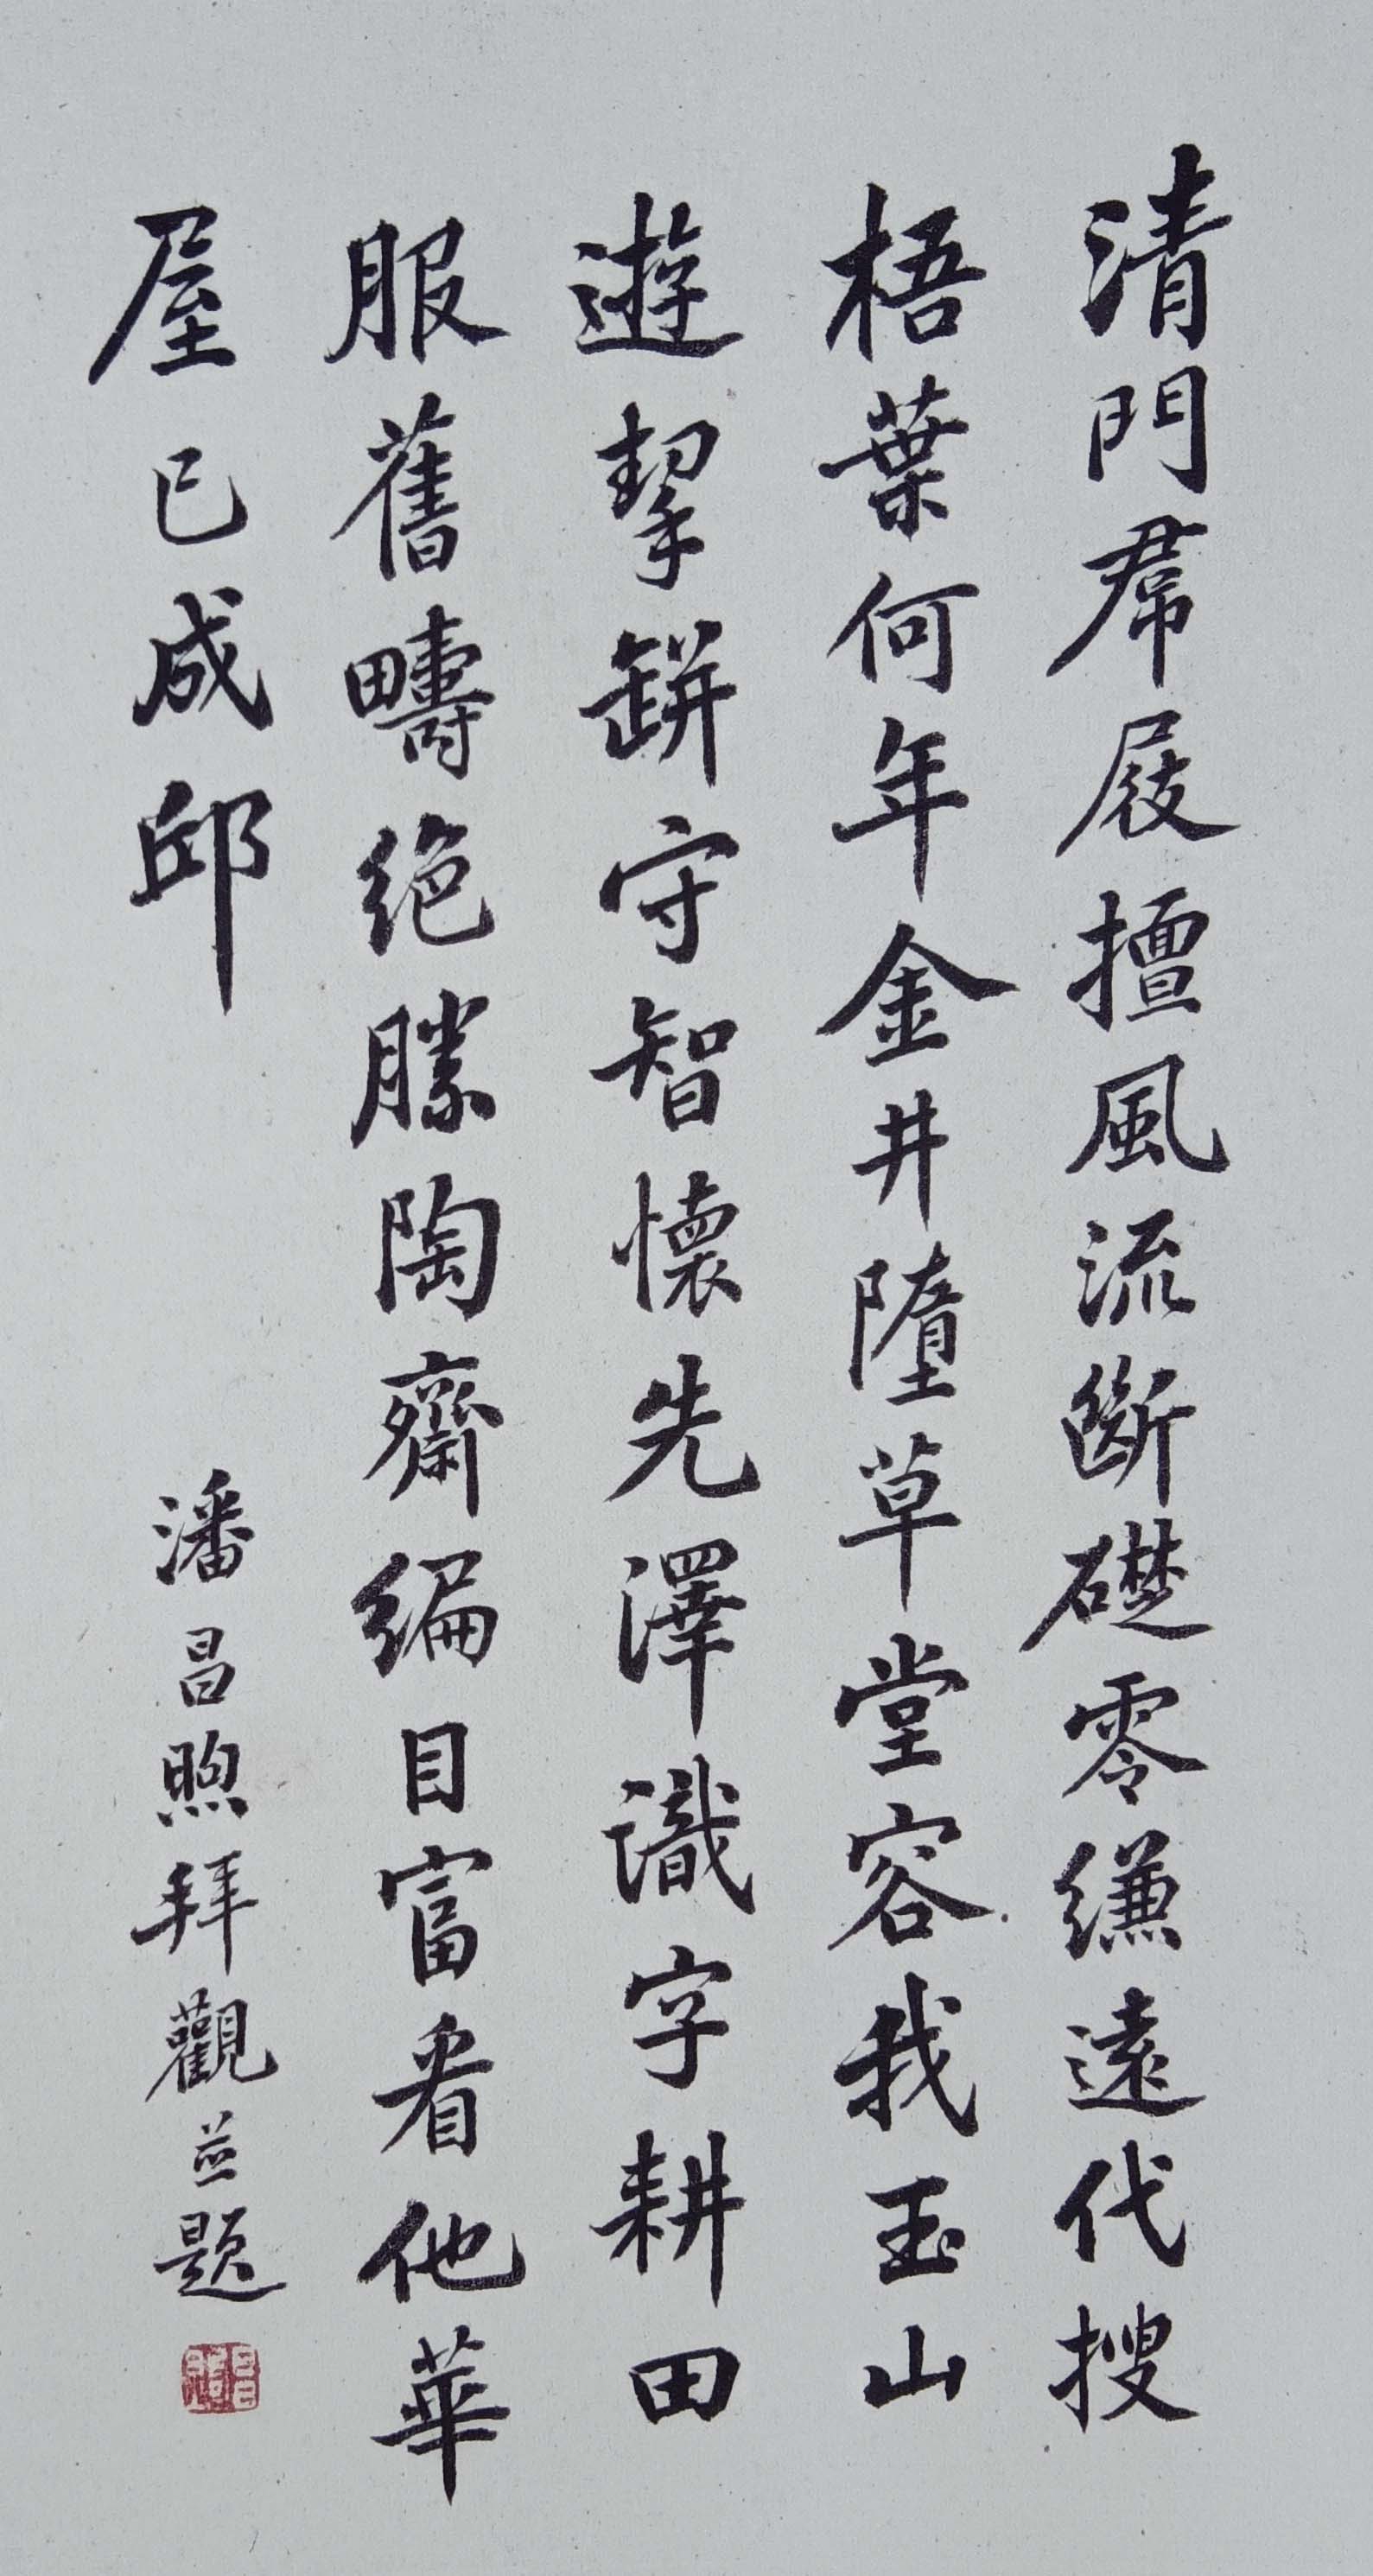 清門帬屐擅風流斷礎零縑遠代搜
梧葉何年金井墮草堂容我玉山
遊挈缾守智懷先澤識字耕田
服舊疇絶勝陶齋編目富看他華
屋已成邱
潘昌煦拜觀並題